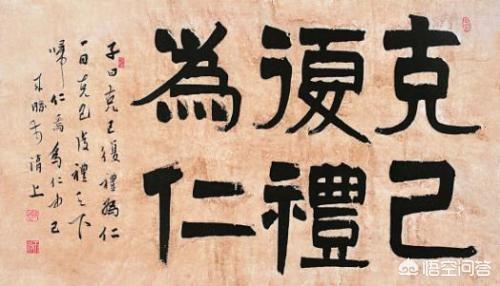 克己
復禮
為仁
子曰克己復禮為仁
一日克己復禮天下
歸仁焉為仁由己
上
悟空问答